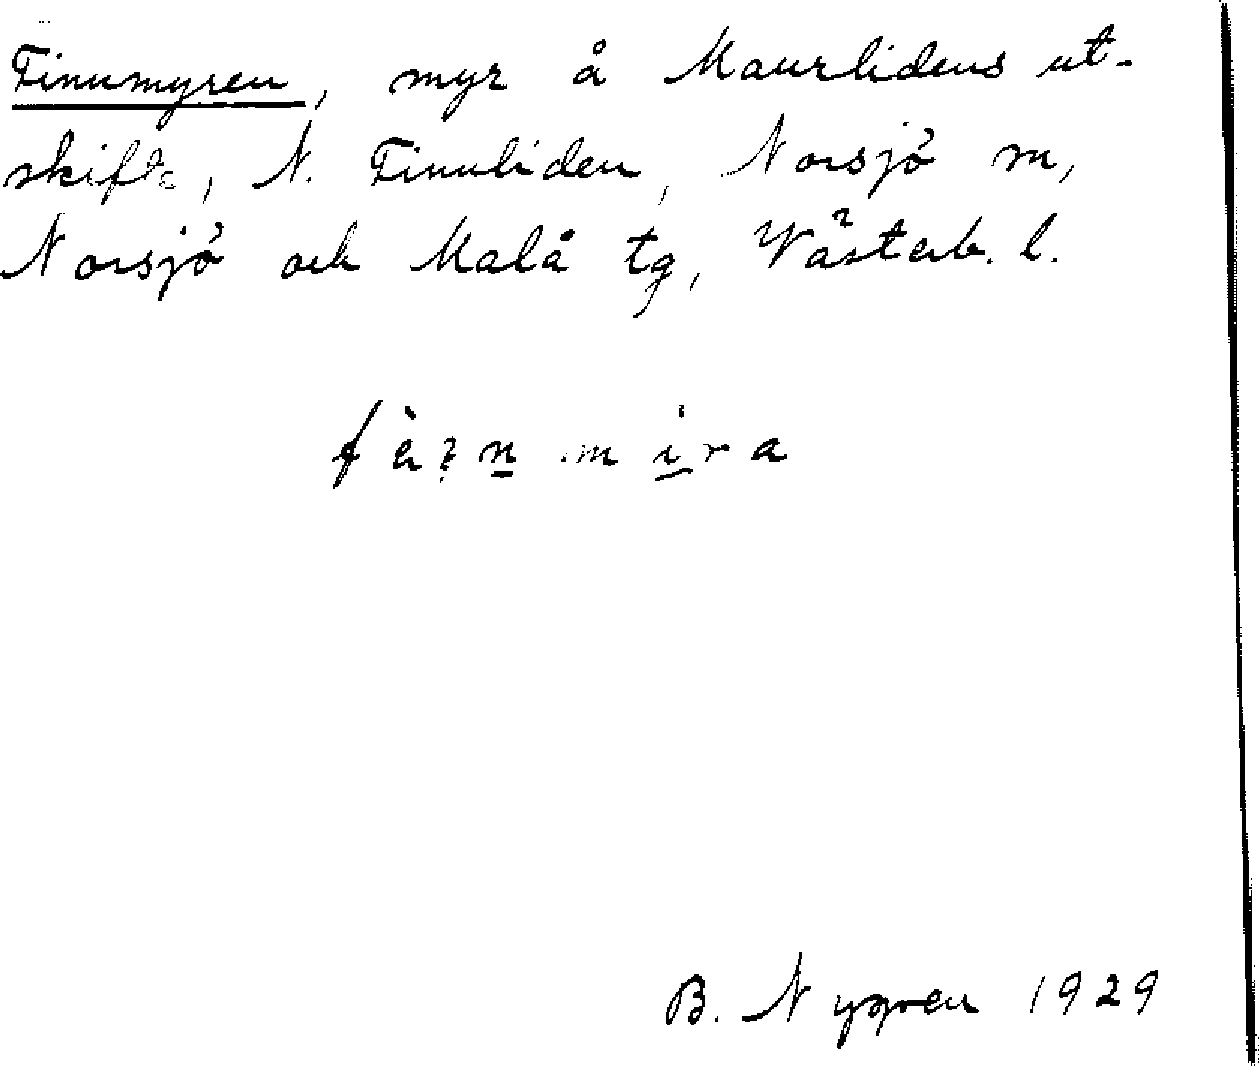 Finnmyren, myr å Maurlidens ut-
skifte, N. Finnliden, Norsjö sn,
Norsjö och Malå tg, Västerb. l.
B. Nygren 1929